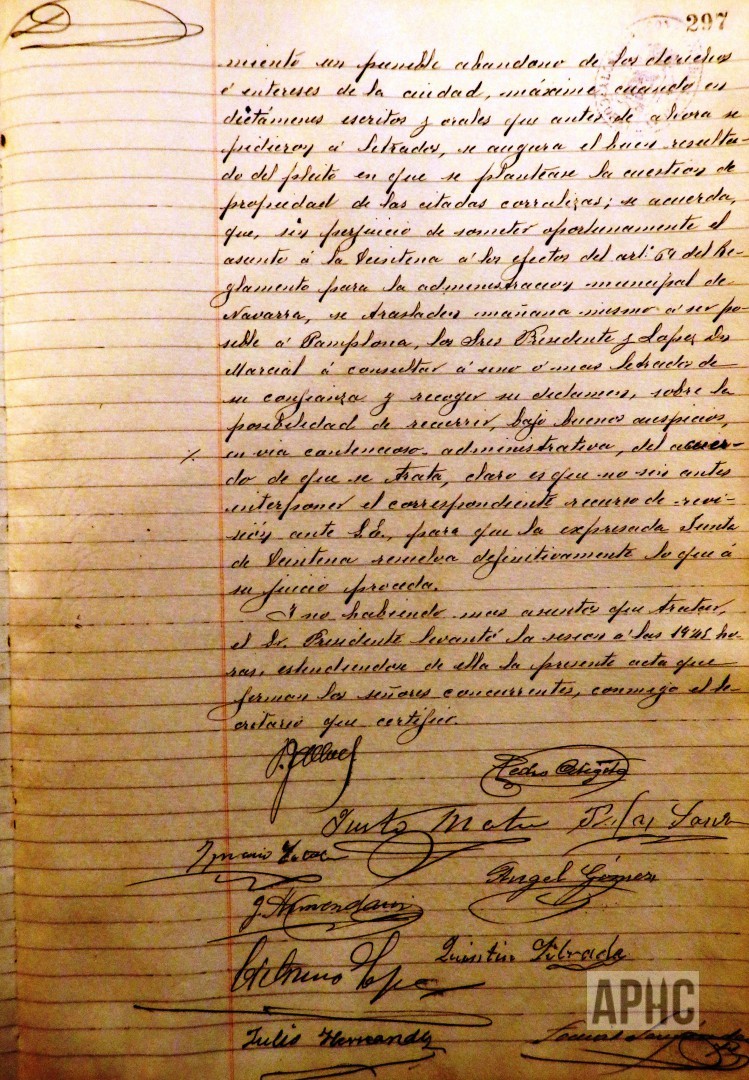 297
miento un punible abandono de los derechos
é intereses de la ciudad, máxime cuando en
dictámenes escritos y orales que antes de ahora se
pidieron á letrados, se augura el buen resulta-
do del pleito en que se plantease la cuestion de
propiedad de las citadas corralizas; se acuerda,
que, sin perjuicio de someter oportunamente el
asunto á la Veintena á los efectos del artº 64 del Re-
glamento para la administracion municipal de
Navarra, se trasladen mañana mismo á ser po-
sible á Pamplona, los Sres Presidente y Lopez Dn
Marcial á consultar á uno ó mas letrados de
su confianza y recoger su dictamen, sobre la
posibilidad de recurrir, bajo buenos auspicios,
en via contencioso-administrativa, del acuer-
do de que se trata, claro es que no sin antes
interponer el correspondiente recurso de revi-
sión ante S.E., para que la expresada Junta
de Veintena resuelva definitivamente lo que á
su juicio proceda.
Y no habiendo mas asuntos que tratar,
el Sr. Presidente levantó la sesion á las 19'45 ho-
ras, estendiendose de ella la presente acta que
firman los señores concurrentes, conmigo el Se-
cretario que certifico.
Pedro
Justo Mata
Angel Gómez
J. Armendariz
Quintin
Julio Hernandez
APHC